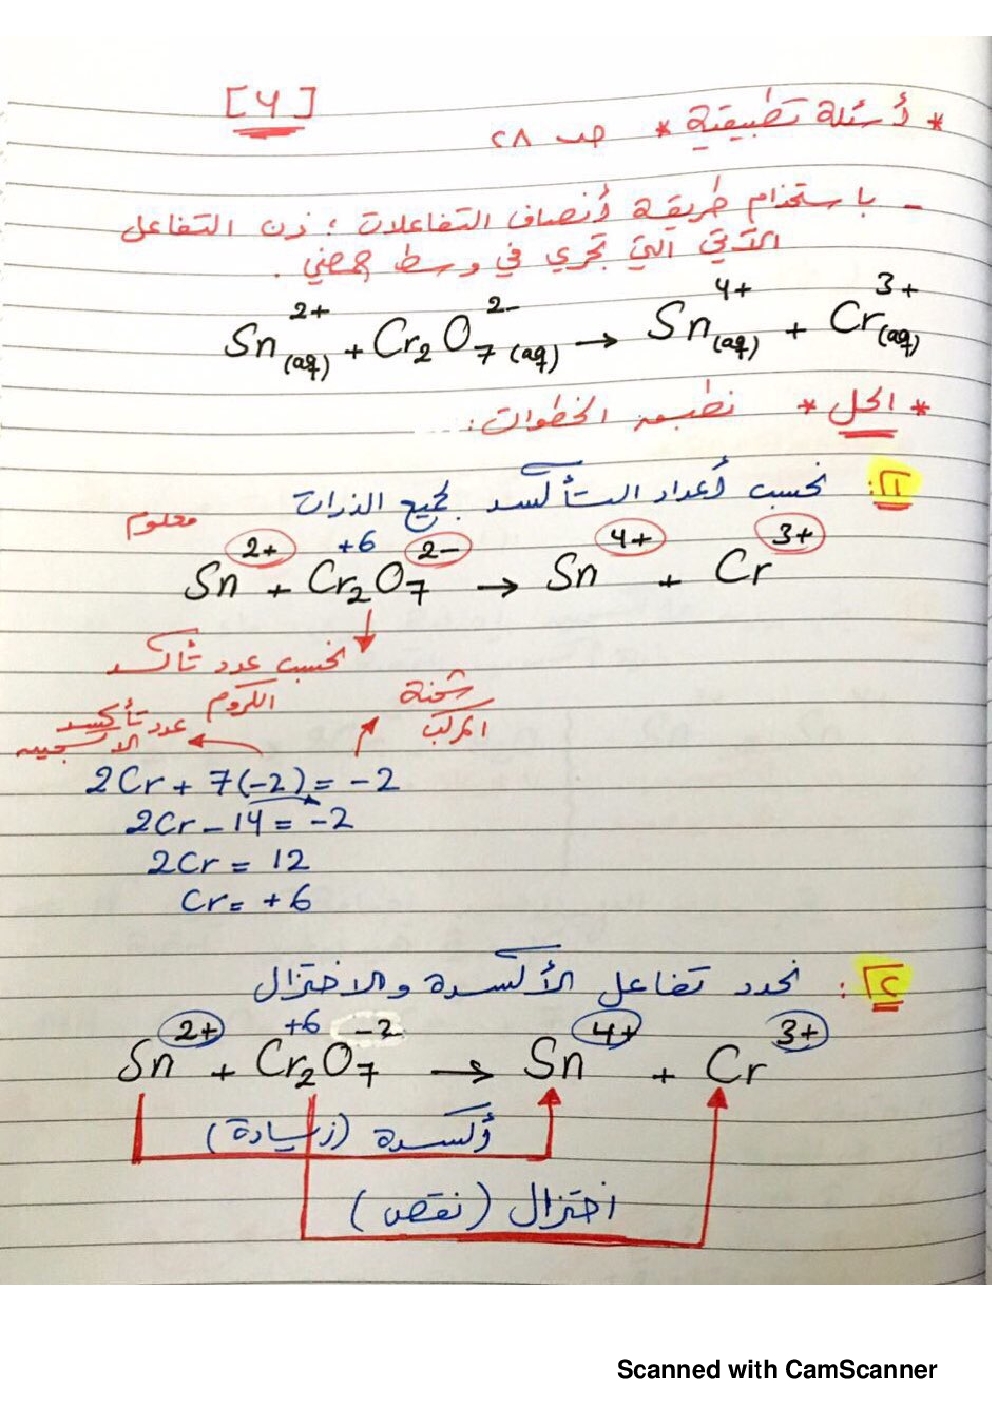 [٢]
* أسئلة تطبيقية * صـ ٢٨
- باستخدام طريقة أنصاف التفاعلات ؛ زن التفاعل
الآتي التي تجري في وسط حمضي .
Sn²⁺(aq) + Cr₂O₇²⁻(aq) → Sn⁴⁺(aq) + Cr³⁺(aq)
* الحل * نطبق الخطوات :
١ : نحسب أعداد التأكسد لجميع الذرات
معلوم
+6
Sn²⁺ + Cr₂O₇²⁻ → Sn⁴⁺ + Cr³⁺
نحسب عدد تأكسد
الكروم
شحنة
المركب
عدد تأكسد
الأكسجين
2Cr + 7(-2) = -2
2Cr - 14 = -2
2Cr = 12
Cr = +6
٢ : نحدد تفاعل الأكسدة والاختزال
+6 -2
Sn²⁺ + Cr₂O₇ → Sn⁴⁺ + Cr³⁺
أكسدة (زيادة)
اختزال (نقص)
Scanned with CamScanner